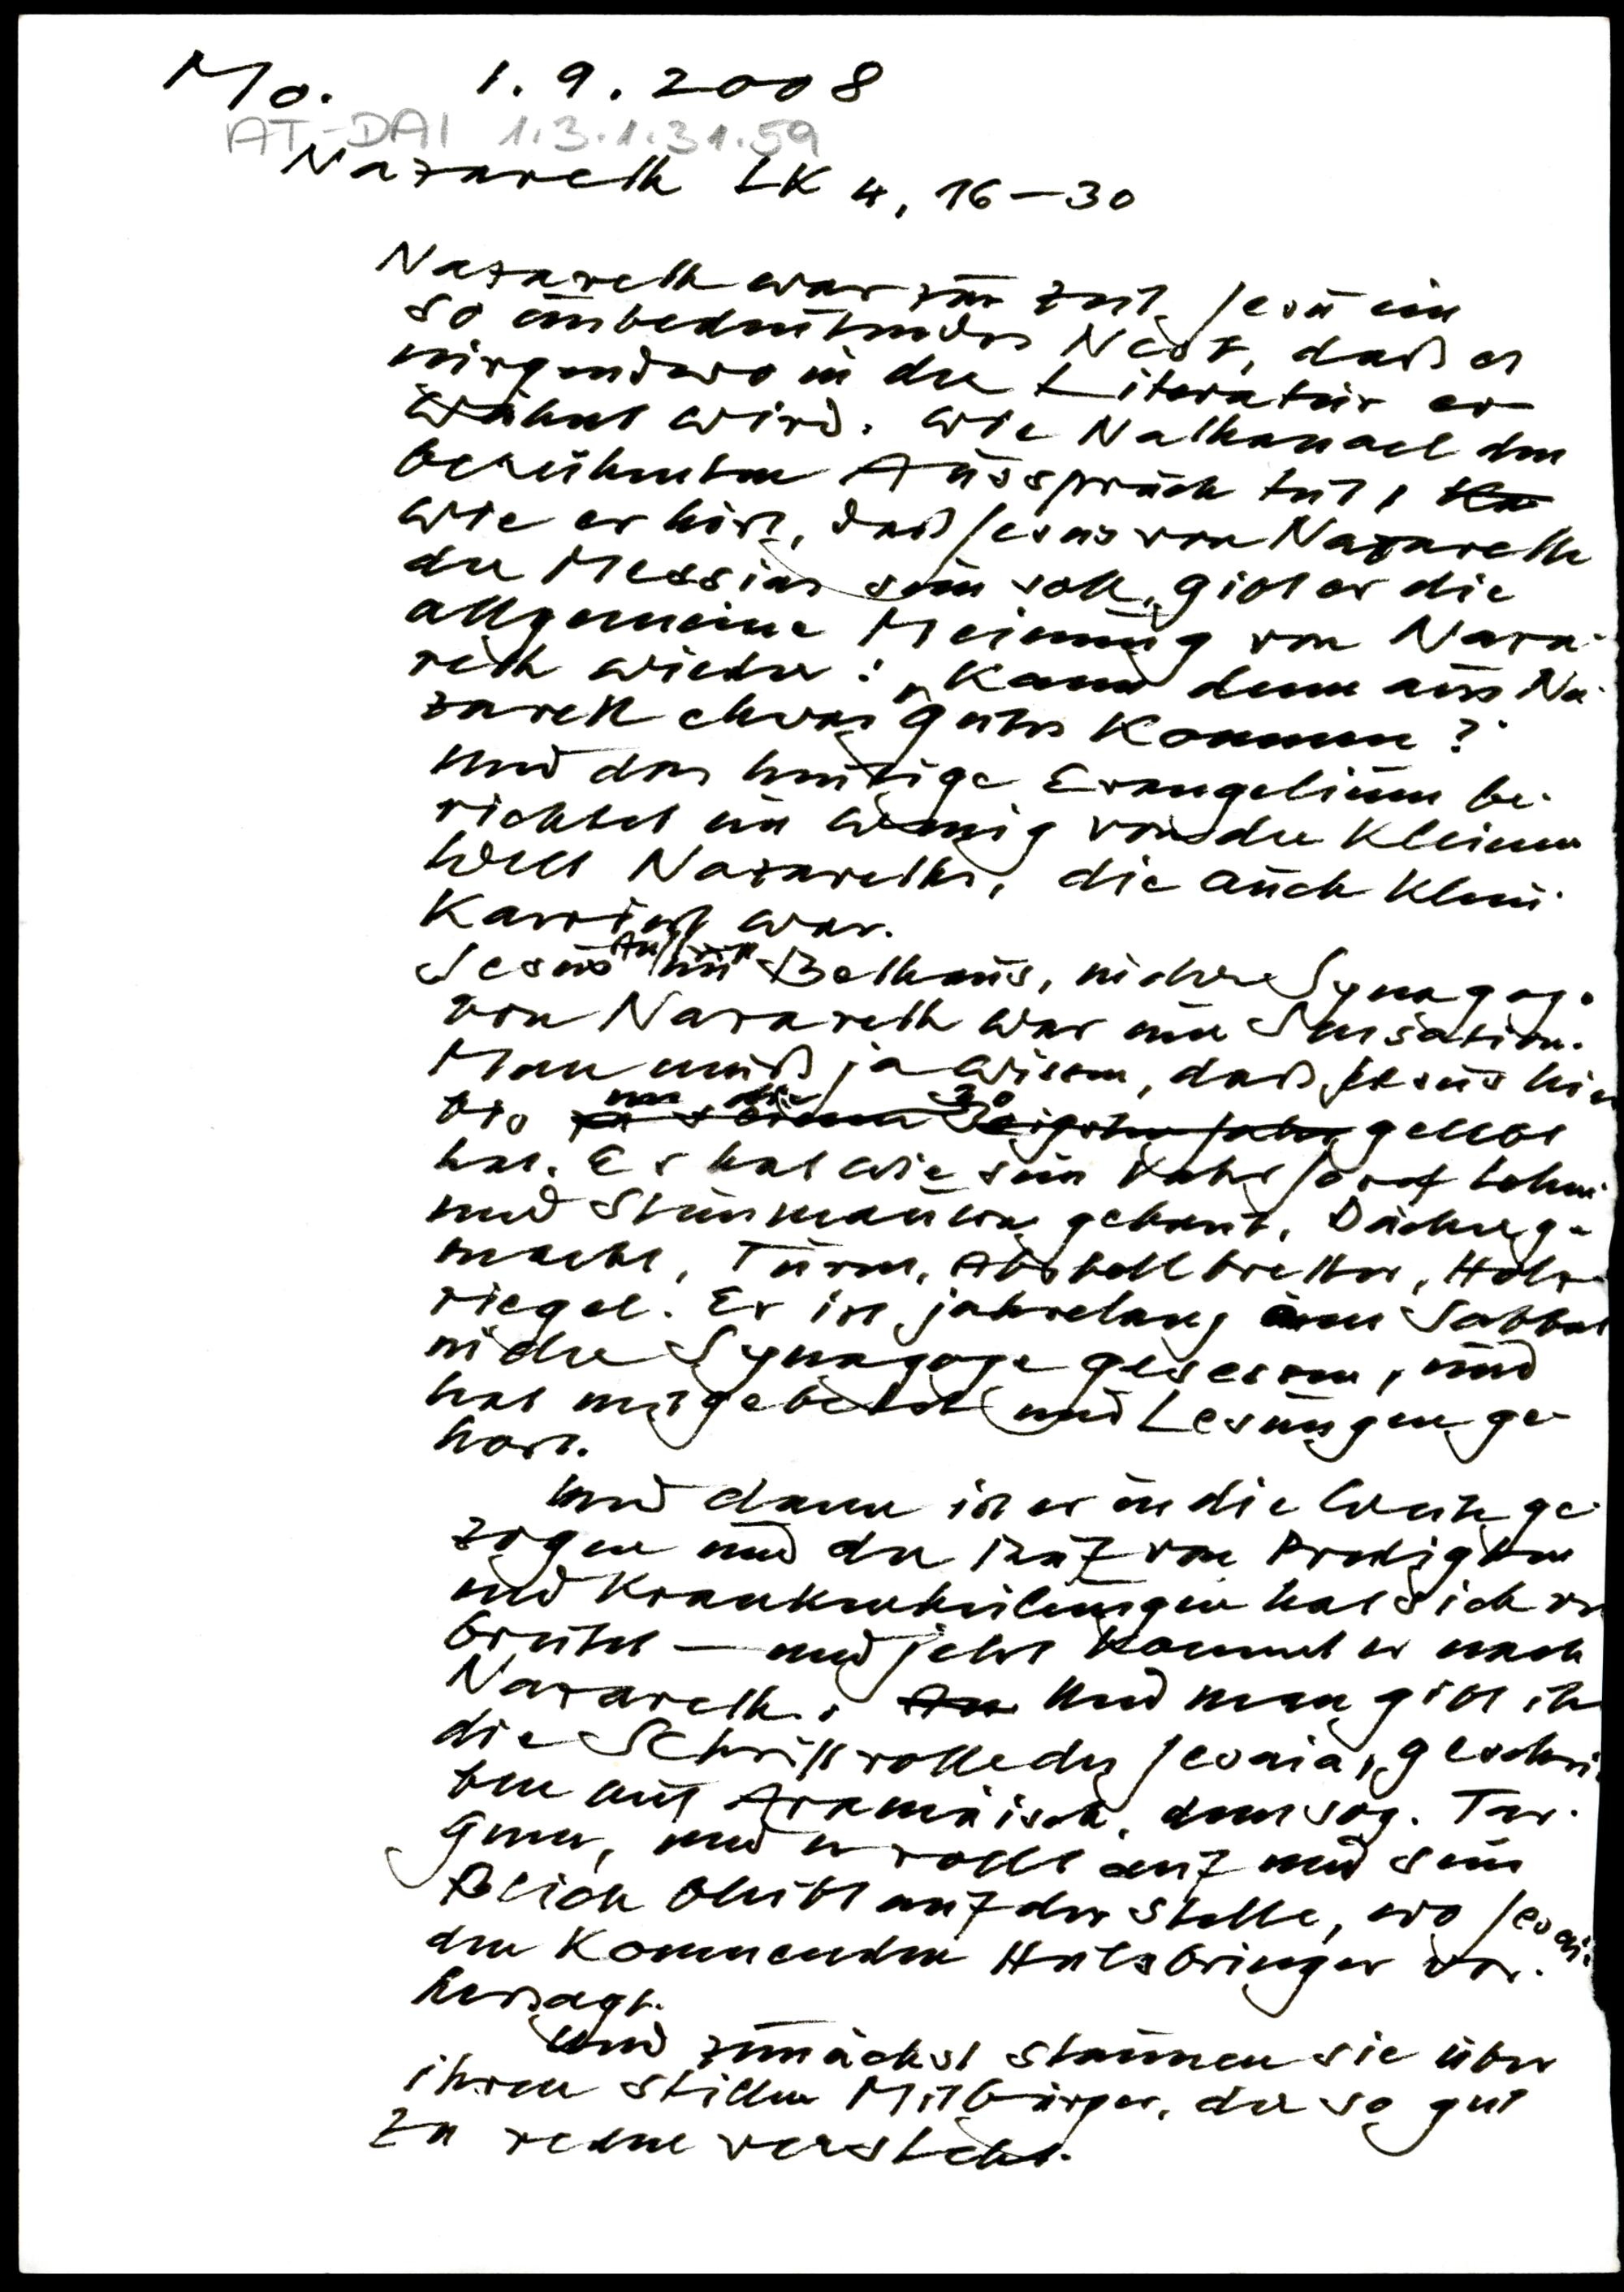 Mo. 1.9.2008
AT-DAI 1.3.1.31.59
Nazareth LK 4, 16-30
Nazareth war zur Zeit Jesu ein
so unbedeutendes Nest, daß es
nirgendwo in der Literatur er-
wähnt wird. Wie Nathanael den
berühmten Ausspruch tut,
wie er hört, daß Jesus von Nazareth
der Messias sein soll, gibt er die
allgemeine Meinung von Naza-
reth wieder: "Kann denn aus Na-
zareth etwas gutes kommen?"
Und das heutige Evangelium be-
richtet ein wenig von der kleinen
Welt Nazareths, die auch klein
kariert war.
Jesus Auftritt im Bethaus, in der Synagoge
von Nazareth war eine Sensation.
Man muß ja wissen, daß Jesus hier
bis um die 30 gelebt
hat. Er hat wie sein Vater Josef Lehm-
und Steinmauern gebaut, Dächer ge-
macht, Türen, Abstellbretter, Holz-
riegel. Er ist jahrelang am Sabbat
in der Synagoge gesessen, und
hat mitgebetet und Lesungen ge-
hört.
Und dann ist er in die Weite ge-
zogen und der Ruf von Predigten
und Krankenheilungen hat sich ver-
breitet - und jetzt kommt er nach
Nazareth. Und man gibt ihm
die Schriftrolle des Jesaia, geschrie-
ben auf Aramäisch, dem sog. Tar-
gum, und er rollt auf und sein
Blick bleibt auf der Stelle, wo Jesaia
den kommenden Heilsbringer vor-
hersagt.
Und zunächst staunen sie über
ihren stillen Mitbürger, der so gut
zu reden versteht.